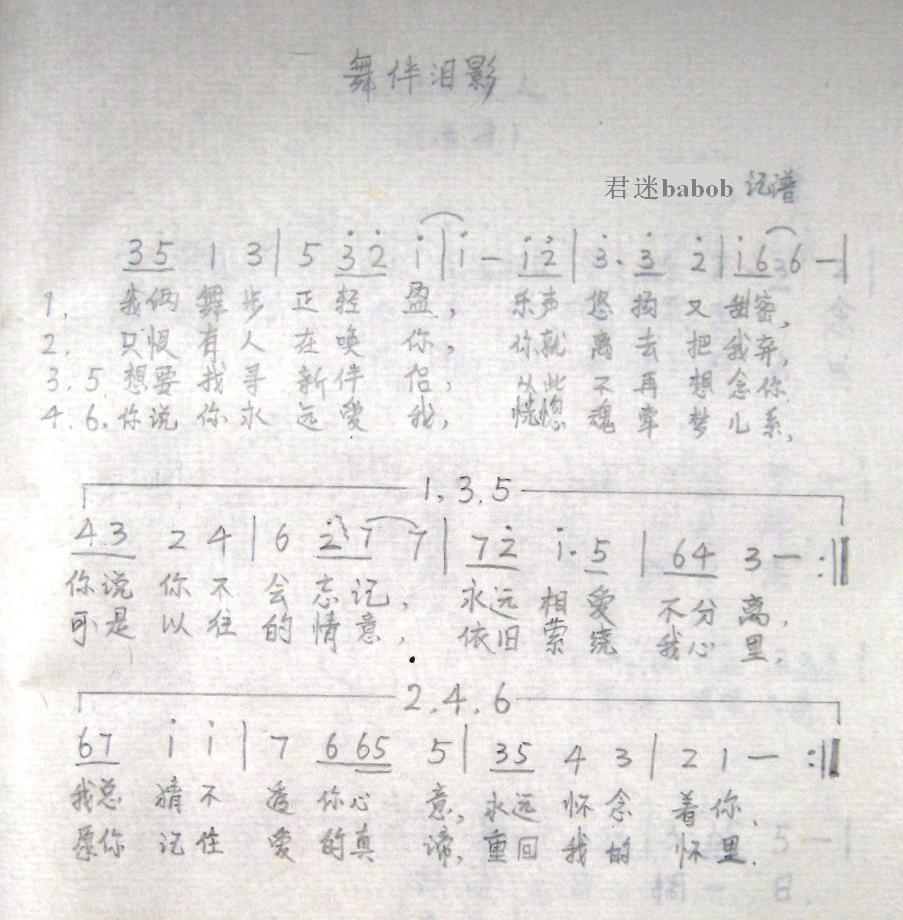 舞伴泪影
君迷babob 记谱
35 1 3 | 5 3̇2̇ 1̇ | 1̇ — 1̇2̇ | 3̇. 3̇ 2̇ | 1̇6 6 — |
1. 我俩 舞 步 正 轻 盈, 乐声 悠 扬 又 甜蜜,
2. 只恨 有 人 在 唤 你, 你就 离 去 把 我弃,
3.5 想要 找 寻 新 伴 侣, 从此 不 再 想 念你.
4.6. 你说 你 永 远 爱 我, 恍惚 魂 牵 梦 儿 系,
1.3.5
43 2 4 | 6 2̇7 7 | 72̇ 1̇. 5 | 64 3 — :||
你说 你 不 会 忘记, 永远 相 爱 不分 离,
可是 以 往 的 情意, 依旧 萦 绕 我心 里.
2.4.6
67 1̇ 1̇ | 7 665 5 | 35 4 3 | 2 1 — :||
我总 猜 不 透 你心 意, 永远 怀 念 着 你.
愿你 记 住 爱 的真 谛, 重回 我 的 怀 里.